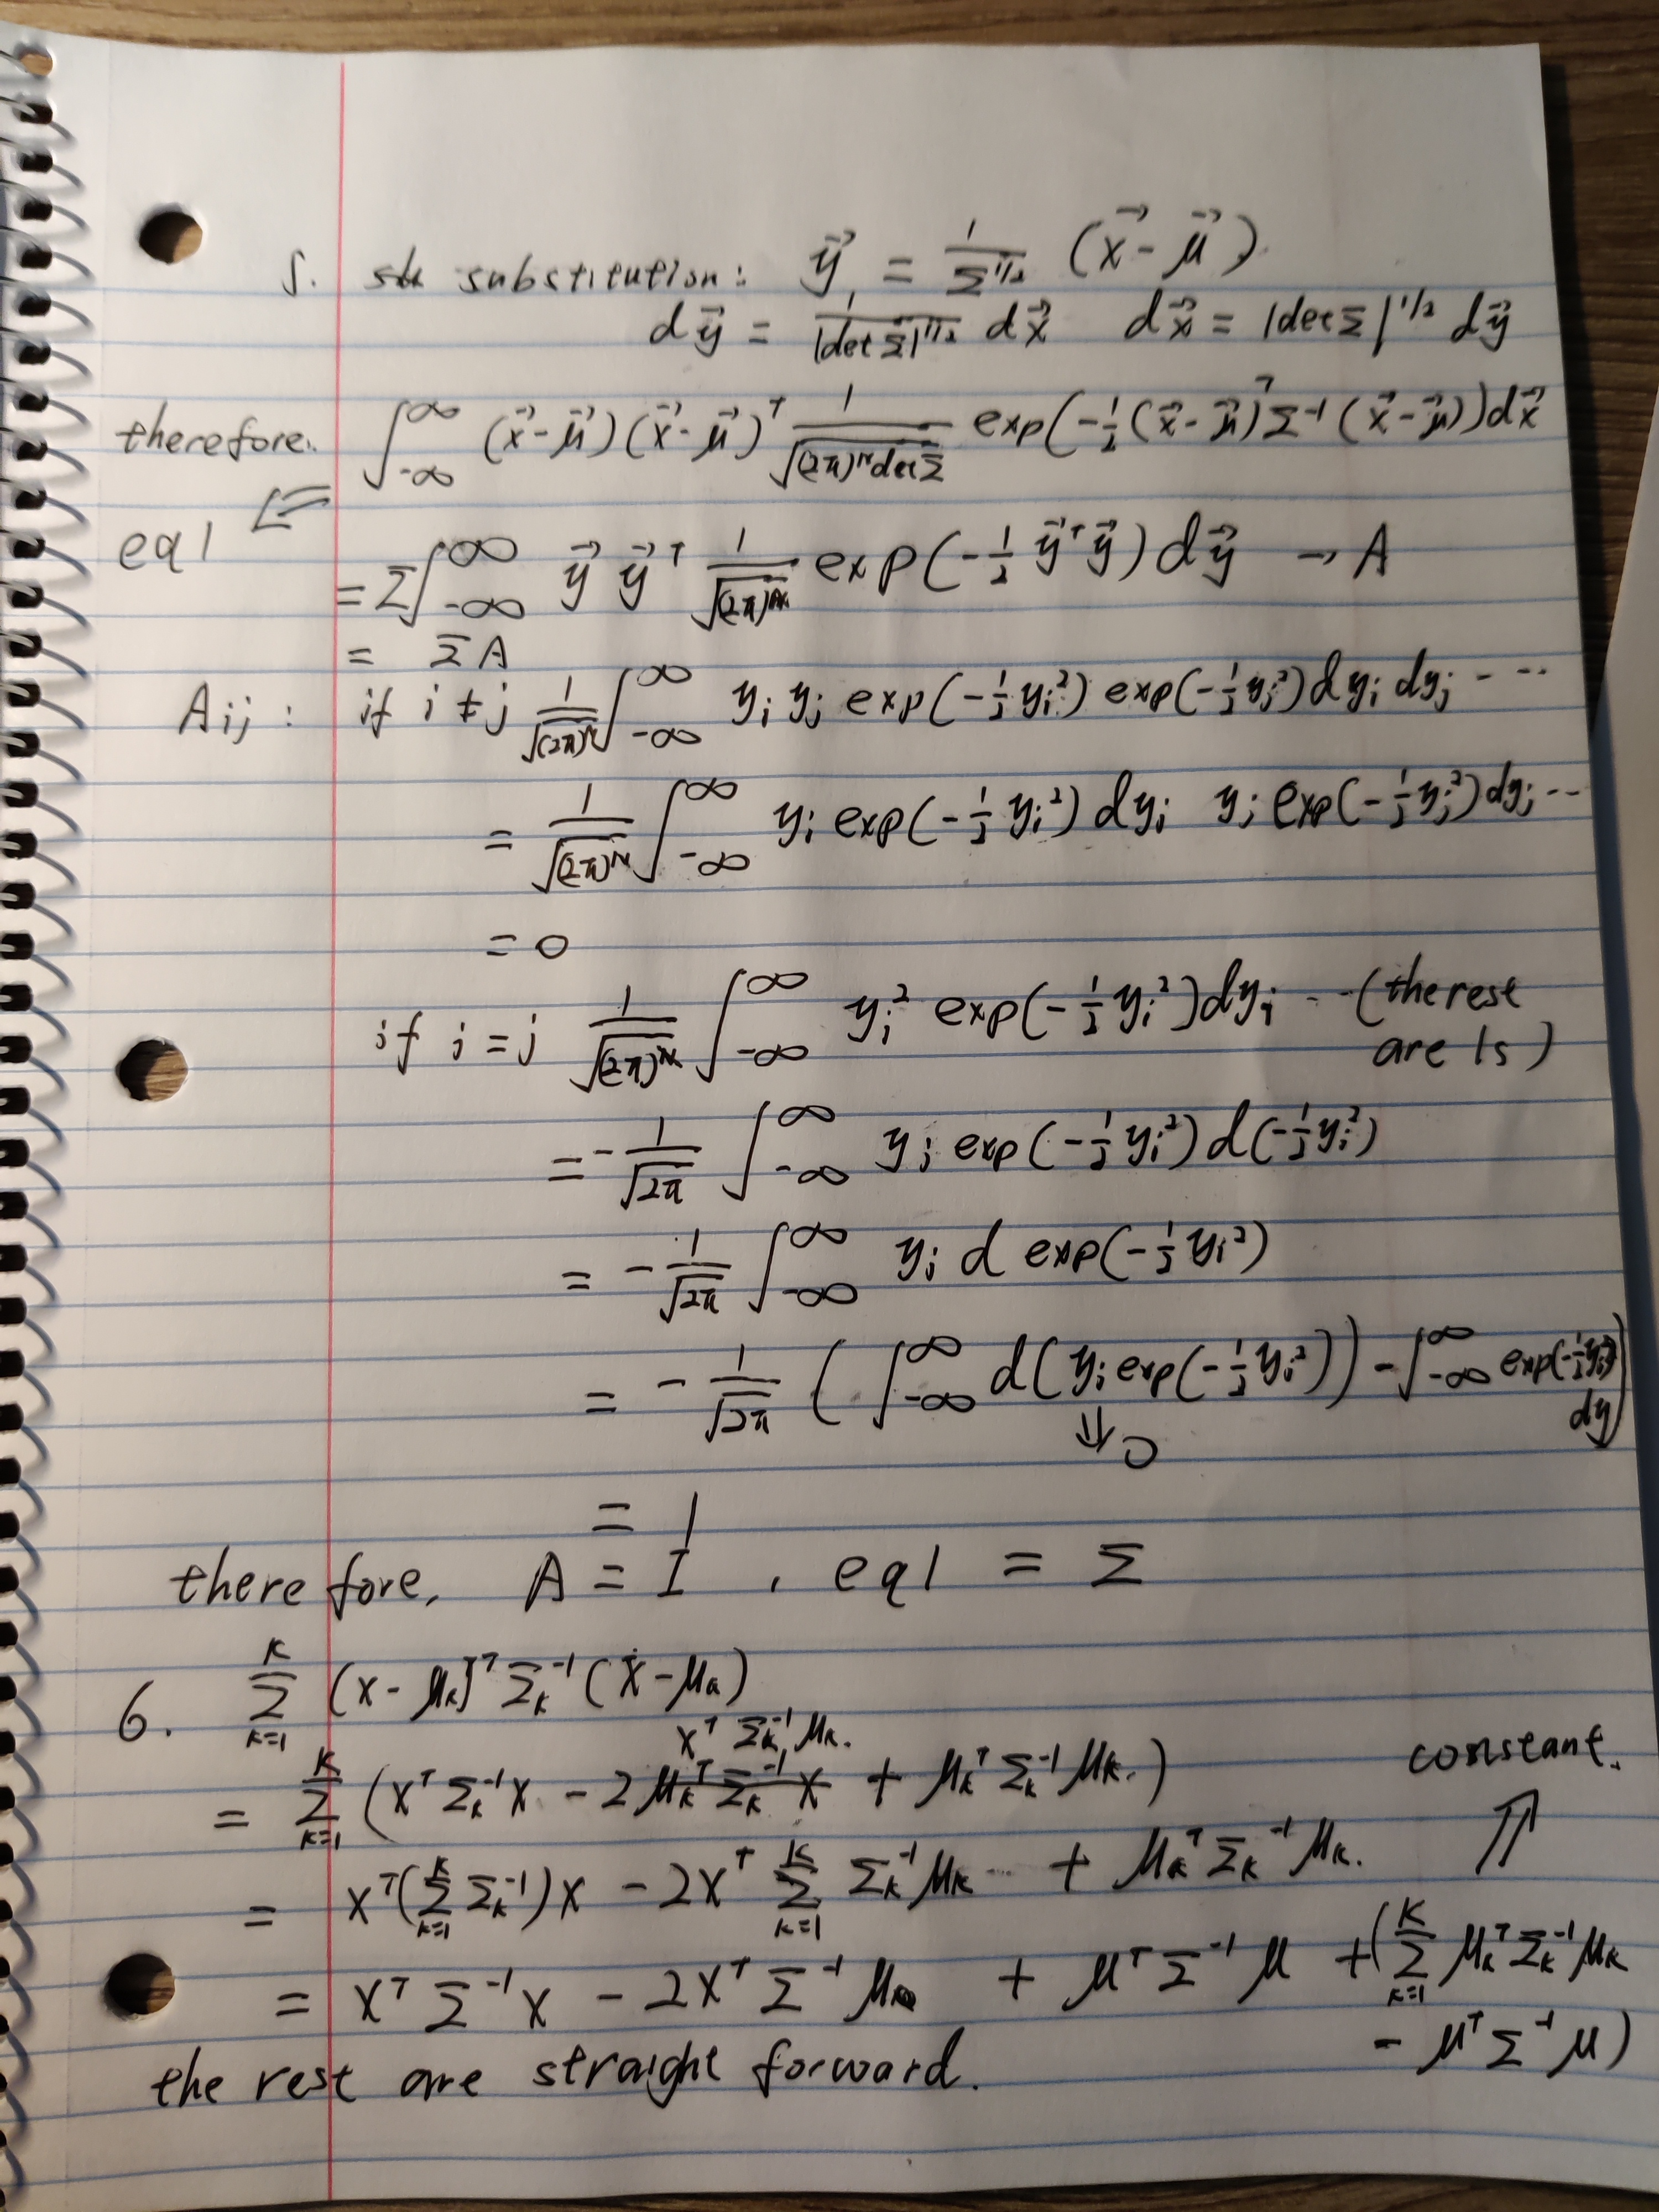 5. substitution: y⃗ = 1/Σ^{1/2} (x⃗ - μ⃗)
dy⃗ = 1/|det Σ|^{1/2} dx⃗   dx⃗ = |det Σ|^{1/2} dy⃗
therefore. ∫_{-∞}^{∞} (x⃗-μ⃗)(x⃗-μ⃗)^T 1/√((2π)^N det Σ) exp(-1/2 (x⃗-μ⃗)^T Σ^{-1} (x⃗-μ⃗)) dx⃗
eq1 ⇐
= Σ∫_{-∞}^{∞} y⃗ y⃗^T 1/√((2π)^N) exp(-1/2 y⃗^T y⃗) dy⃗ → A
= ΣA
A_{ij}: if i ≠ j 1/√((2π)^N) ∫_{-∞}^{∞} y_i y_j exp(-1/2 y_i^2) exp(-1/2 y_j^2) dy_i dy_j ...
= 1/√((2π)^N) ∫_{-∞}^{∞} y_i exp(-1/2 y_i^2) dy_i y_j exp(-1/2 y_j^2) dy_j ...
= 0
if i = j 1/√((2π)^N) ∫_{-∞}^{∞} y_i^2 exp(-1/2 y_i^2) dy_i ... (the rest
are 1s)
= -1/√(2π) ∫_{-∞}^{∞} y_i exp(-1/2 y_i^2) d(-1/2 y_i^2)
= -1/√(2π) ∫_{-∞}^{∞} y_i d exp(-1/2 y_i^2)
= -1/√(2π) (∫_{-∞}^{∞} d(y_i exp(-1/2 y_i^2)) - ∫_{-∞}^{∞} exp(-1/2 y_i^2) dy)
⇓ 0
= 1
therefore, A = I, eq1 = Σ
6. Σ_{k=1}^{K} (x-μ_k)^T Σ_k^{-1} (x-μ_k)
x^T Σ_k^{-1} μ_k.
= Σ_{k=1}^{K} (x^T Σ_k^{-1} x - 2 μ_k^T Σ_k^{-1} x + μ_k^T Σ_k^{-1} μ_k.)
constant.
⇑
= x^T (Σ_{k=1}^{K} Σ_k^{-1}) x - 2x^T Σ_{k=1}^{K} Σ_k^{-1} μ_k + μ_k^T Σ_k^{-1} μ_k.
= x^T Σ^{-1} x - 2x^T Σ^{-1} μ + μ^T Σ^{-1} μ + (Σ_{k=1}^{K} μ_k^T Σ_k^{-1} μ_k
- μ^T Σ^{-1} μ)
the rest are straight forward.